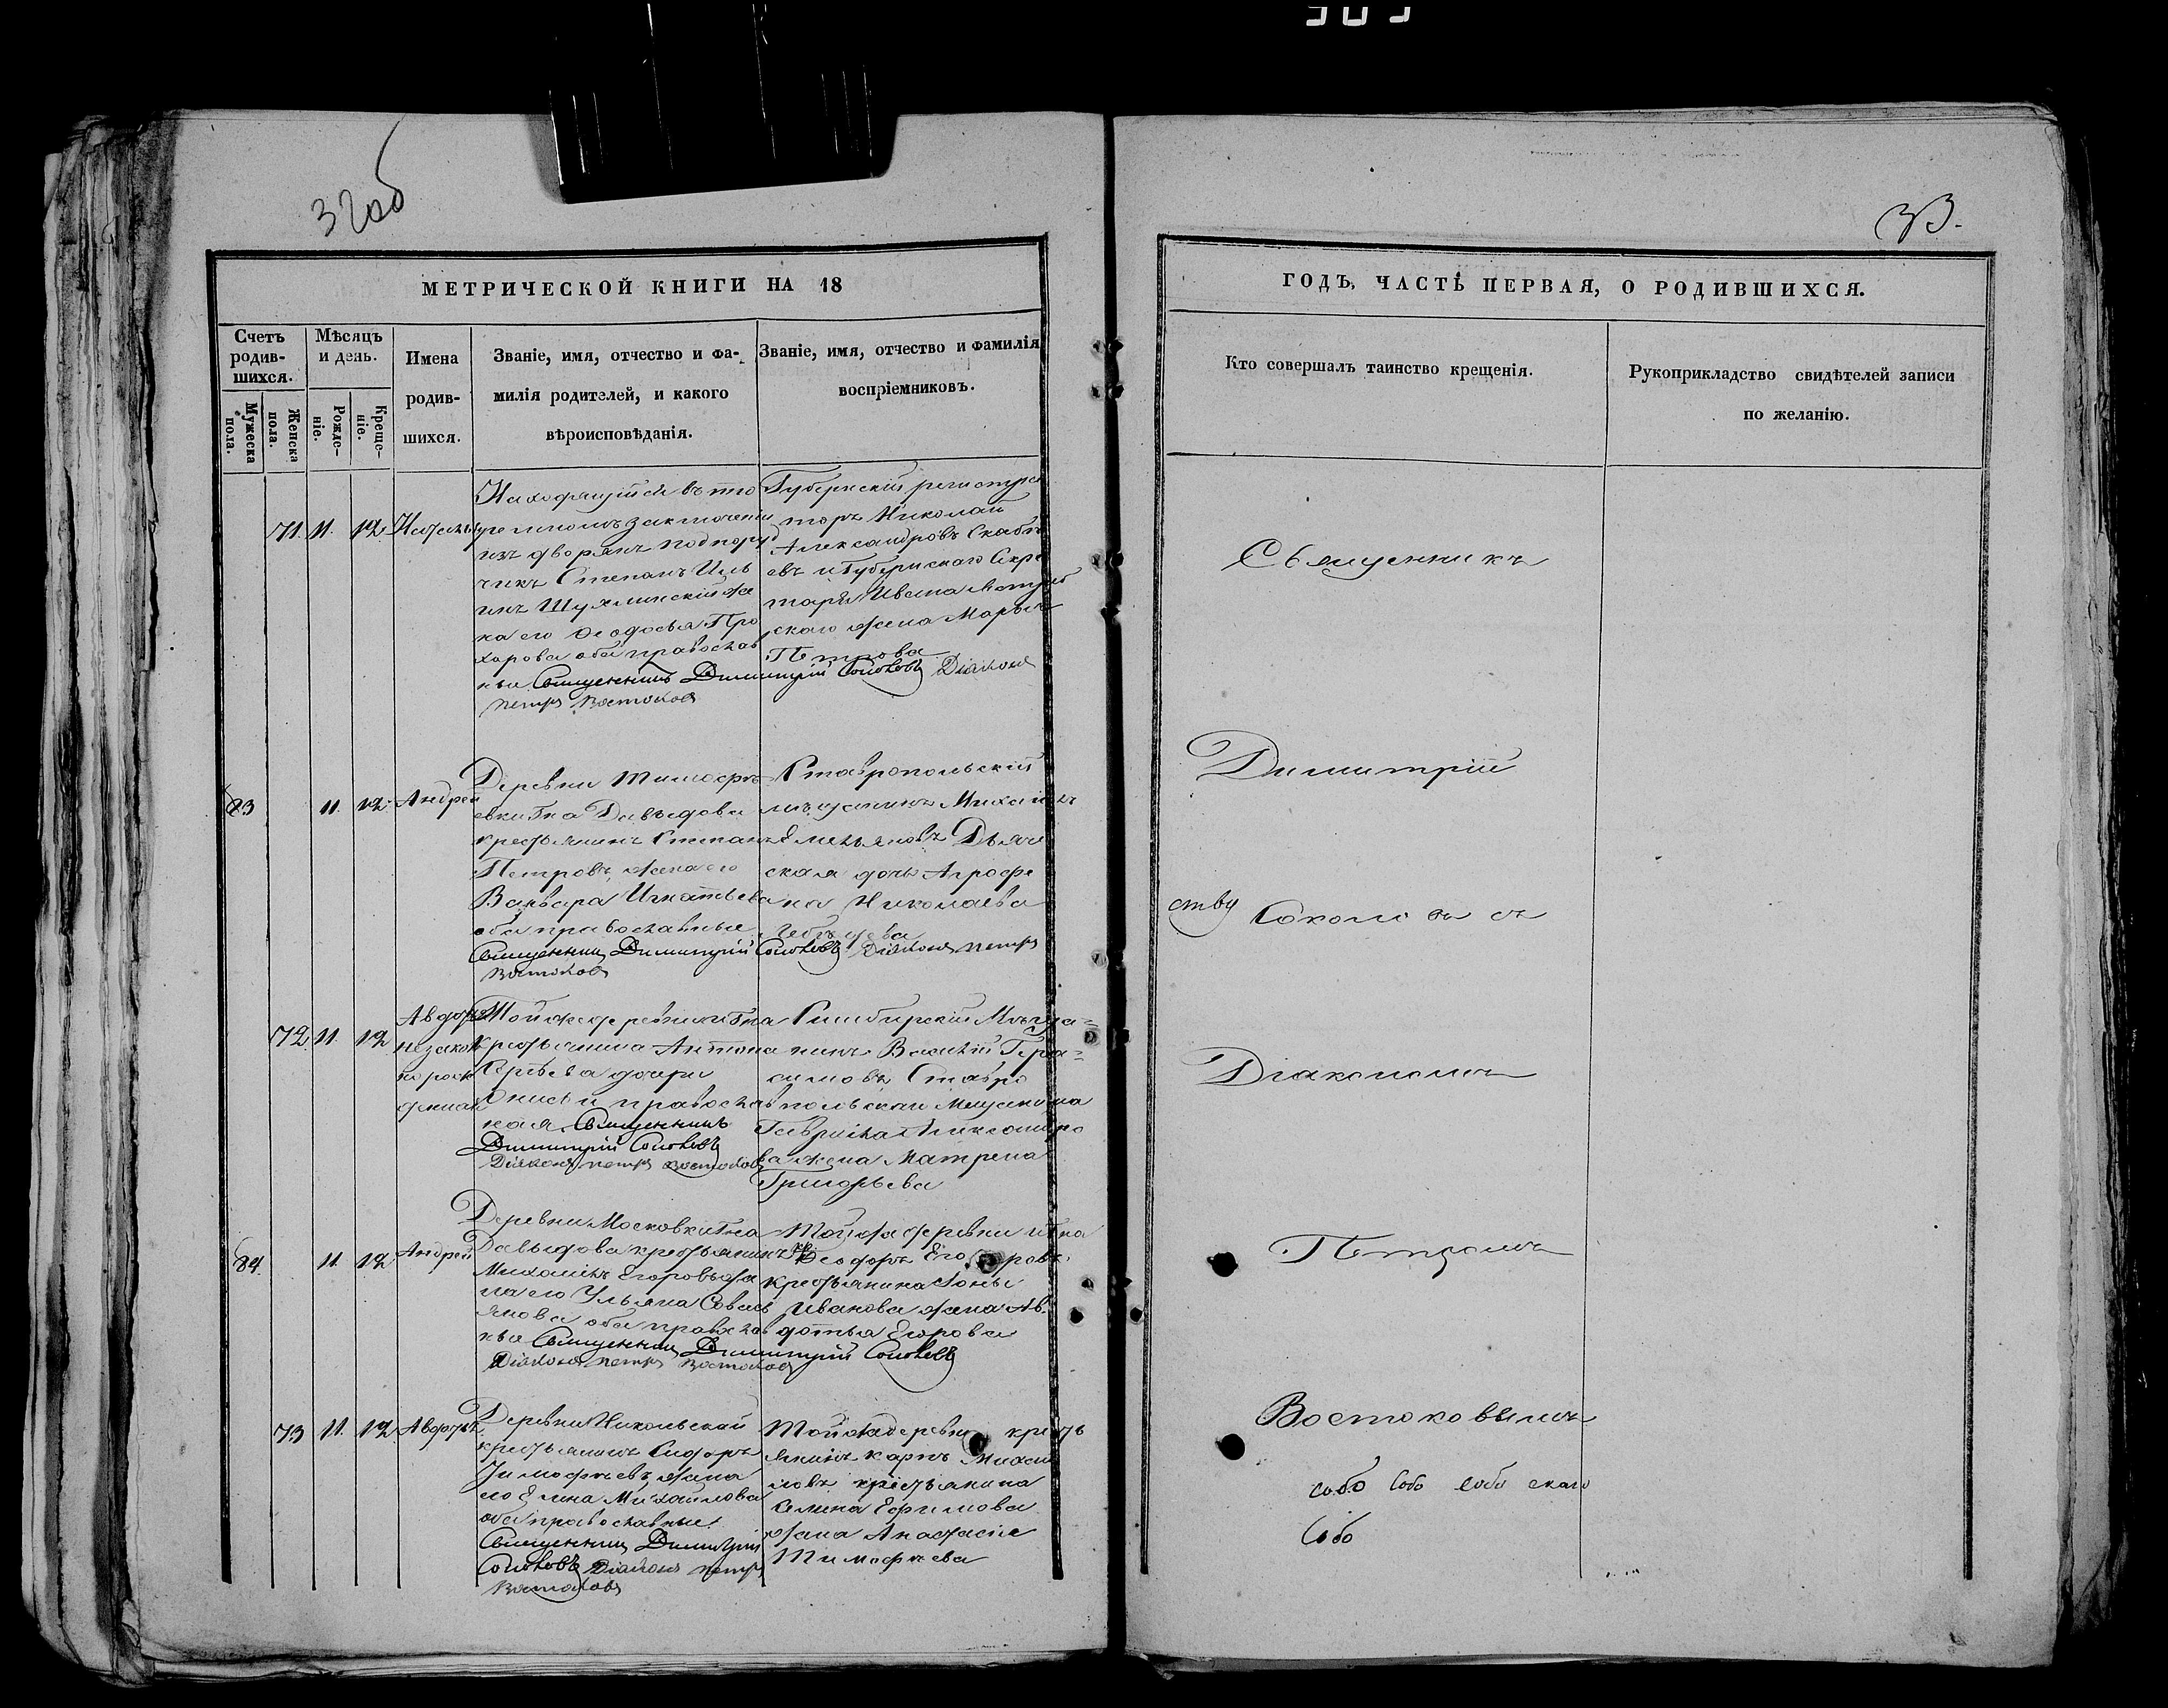 32об
33.
МЕТРИЧЕСКОЙ КНИГИ НА 18
Счетъ родив-шихся.
Мужеска пола.
Женска пола.
Мѣсяцъ и день.
Рожде-ніе.
Креще-ніе.
Имена родив-шихся.
Званіе, имя, отчество и фа-
милія родителей, и какого
вѣроисповѣданія.
Званіе, имя, отчество и фамилія
воспріемниковъ.
71. 11. 12.
Находящійся въ тю
ремномъ заключеніи
изъ дворянъ подпору
чикъ Степанъ Иль
инъ же
на его Ѳеодосья Про
харова оба православ
ные Священникъ Димитрій Соколовъ Діаконъ
Петръ Востоковъ
Губернскій регистра
торъ Николай
Александровъ
евъ и Губернскаго Секре
таря Ивана
скаго жена Марья
Петрова
83 11. 12. Андрей
Деревни Тимоѳѣ
евки Гна Давыдова
крестьянинъ Степанъ
Петровъ, жена его
Варвара Игнатьева
оба православные
Священникъ Димитрій Соколовъ Діаконъ Петръ
Востоковъ
Ставропольскій
мѣщанинъ Михаилъ
Емельяновъ Дьяче
ская дочь Агрофе
на Николаева
72. 11. 12 Авдотья
незакон
но рож
денная
Той же деревни и Гна
Крестьянина Антона
дочери
православ
ная Священникъ
Димитрій Соколовъ
Діаконъ Петръ Востоковъ
Симбирскій Мѣща=
нинъ Василій Гера=
симовъ Ставро
польскаго Мещанина
Гаврила Александро
ва жена Матрена
Григорьева
84. 11. 12 Андрей
Деревни Московки Гна
Давыдова крестьянинъ
Михаилъ Егоровъ же
на его Ульяна
оба православ
ные Священникъ Димитрій Соколовъ
Діаконъ Петръ Востоковъ
Той же деревни и Гна
Ѳеодоръ Егоровъ
крестьянина
Иванова жена Ав
дотья Егорова
73 11. 12. Авдотья
Деревни Никольской
крестьянинъ Сидоръ
Тимофѣевъ, жена
его Елена Михайлова
оба православные.
Священникъ Димитрій
Соколовъ Діаконъ Петръ
Востоковъ
Той же деревни кресть
янинъ Карпъ Михаи
ловъ крестьянина
Ефимова
жена Анастасія
Тимофѣева
ГОДЪ, ЧАСТЬ ПЕРВАЯ, О РОДИВШИХСЯ.
Кто совершалъ таинство крещенія.
Рукоприкладство свидѣтелей записи
по желанію.
Священникъ
Димитрій
ству Соколовъ съ
Діакономъ
Петромъ
Востоковымъ
собо собо собо скаго
собо